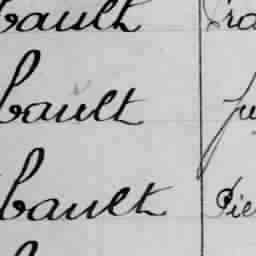 bault
bault
bault Pie